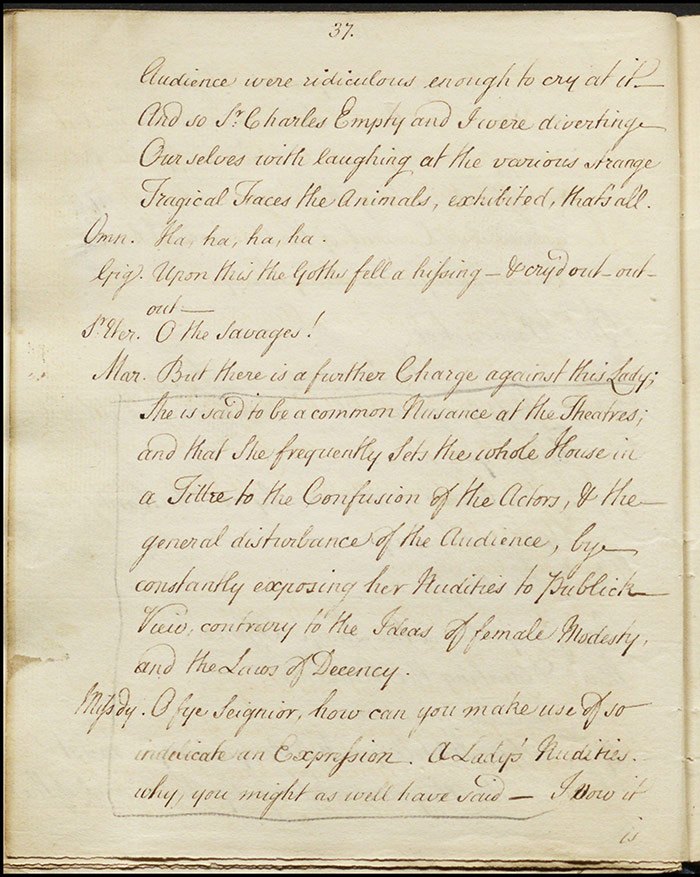 37.
Audience were ridiculous enough to cry at it —
And so Sr. Charles Empty and I were diverting
Our selves with laughing at the various strange
Tragical Faces the Animals, exhibited, that's all.
Omn. Ha, ha, ha, ha.
Gig. Upon this the Goths fell a hissing — & cry'd out — out —
out —
Sr. Eter. O the Savages!
Mar. But there is a further Charge against this Lady;
She is said to be a common Nusance at the Theatres;
and that She frequently Sets the whole House in
a Tittre to the Confusion of the Actors, & the
general disturbance of the Audience, by
constantly exposing her Nudities to Publick
View, contrary to the Ideas of female Modesty,
and the Laws of Decency.
Miss dy. O fye Seignior, how can you make use of so
indelicate an Expression. A Lady's Nudities.
why, you might as well have said — I vow it
is